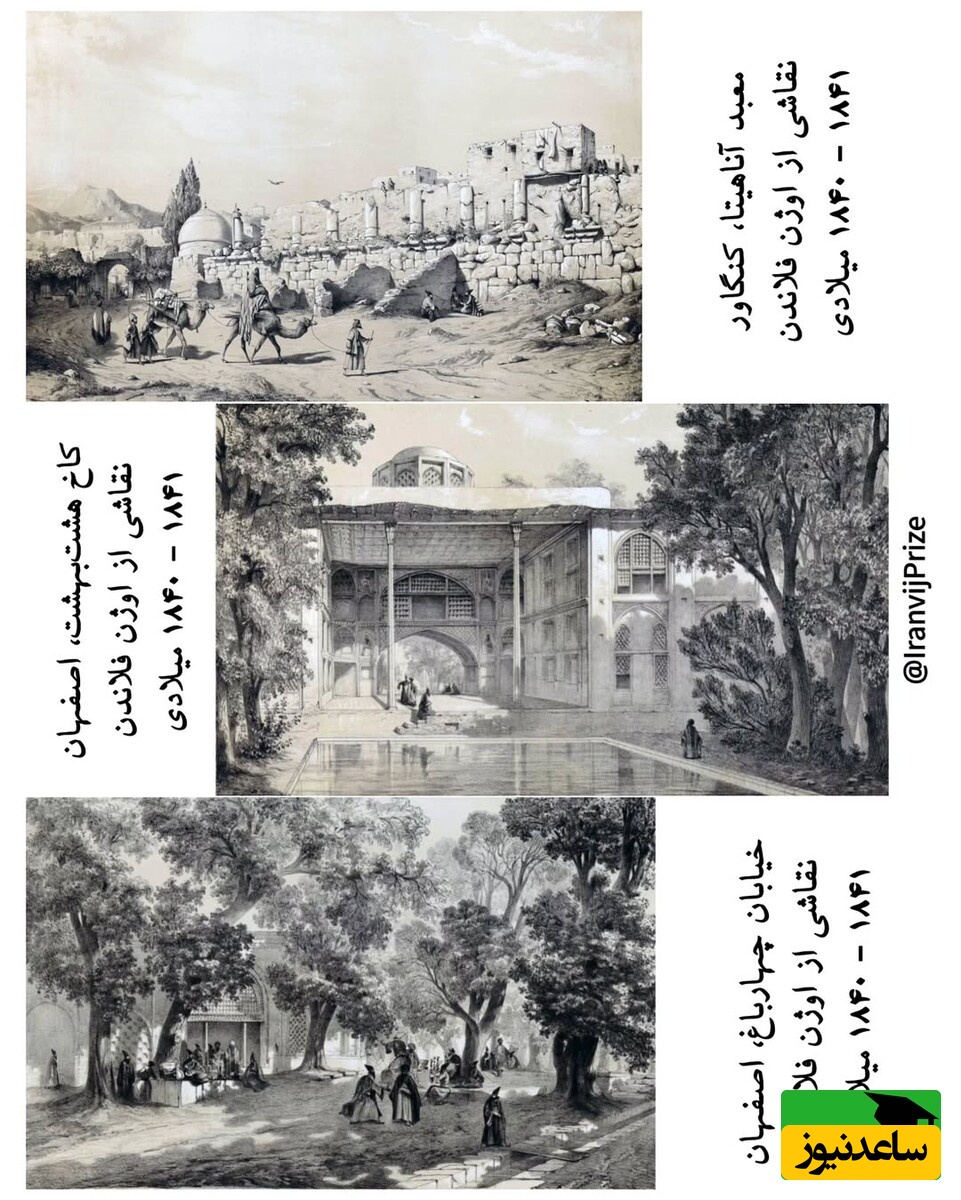 معبد آناهیتا، کنگاور
نقاشی از اوژن فلاندن
۱۸۴۱ – ۱۸۴۰ میلادی
کاخ هشت‌بهشت، اصفهان
نقاشی از اوژن فلاندن
۱۸۴۱ – ۱۸۴۰ میلادی
@IranvijPrize
خیابان چهارباغ، اصفهان
نقاشی از اوژن
۱۸۴۱ – ۱۸۴۰
ساعدنیوز